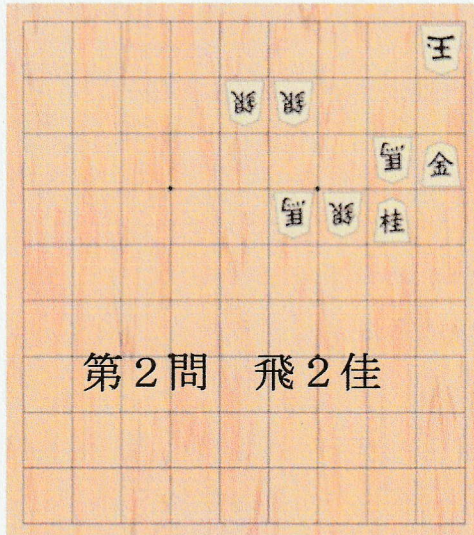 王
銀 銀
馬 金
馬 銀 桂
第2問 飛2佳